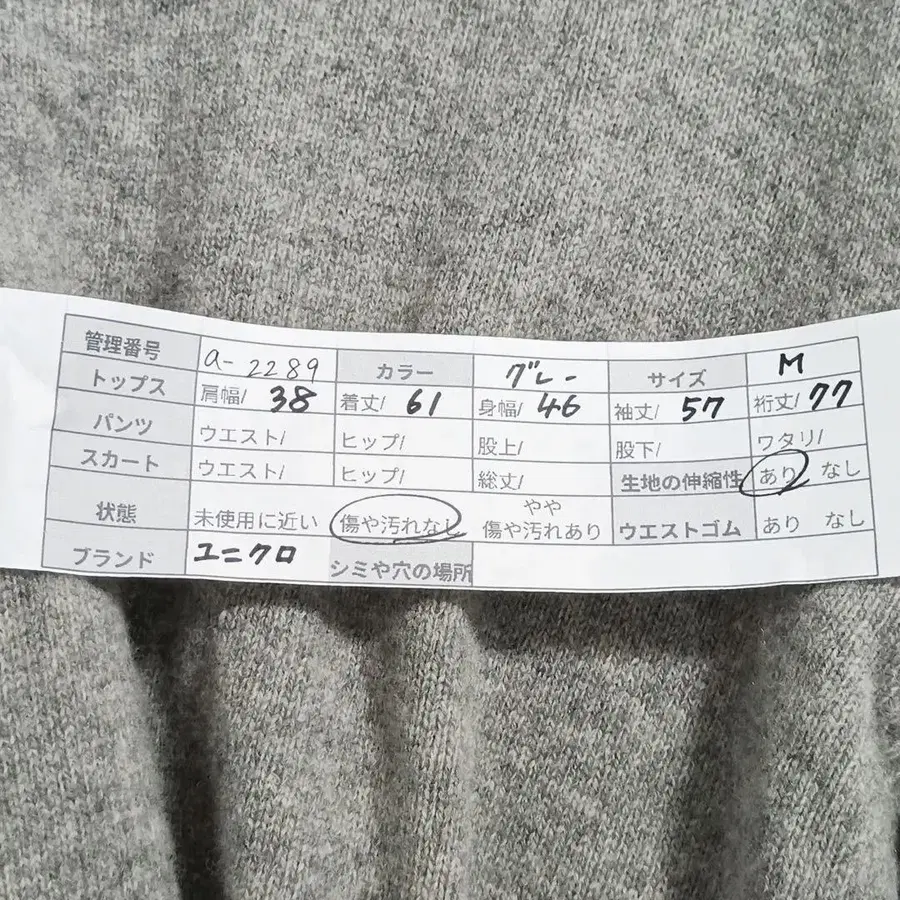 管理番号 a-2289 カラー グレー サイズ M
トップス 肩幅/ 38 着丈/ 61 身幅/ 46 袖丈/ 57 裄丈/ 77
パンツ ウエスト/ ヒップ/ 股上/ 股下/ ワタリ/
スカート ウエスト/ ヒップ/ 総丈/ 生地の伸縮性 あり なし
状態 未使用に近い 傷や汚れなし やや傷や汚れあり ウエストゴム あり なし
ブランド ユニクロ シミや穴の場所